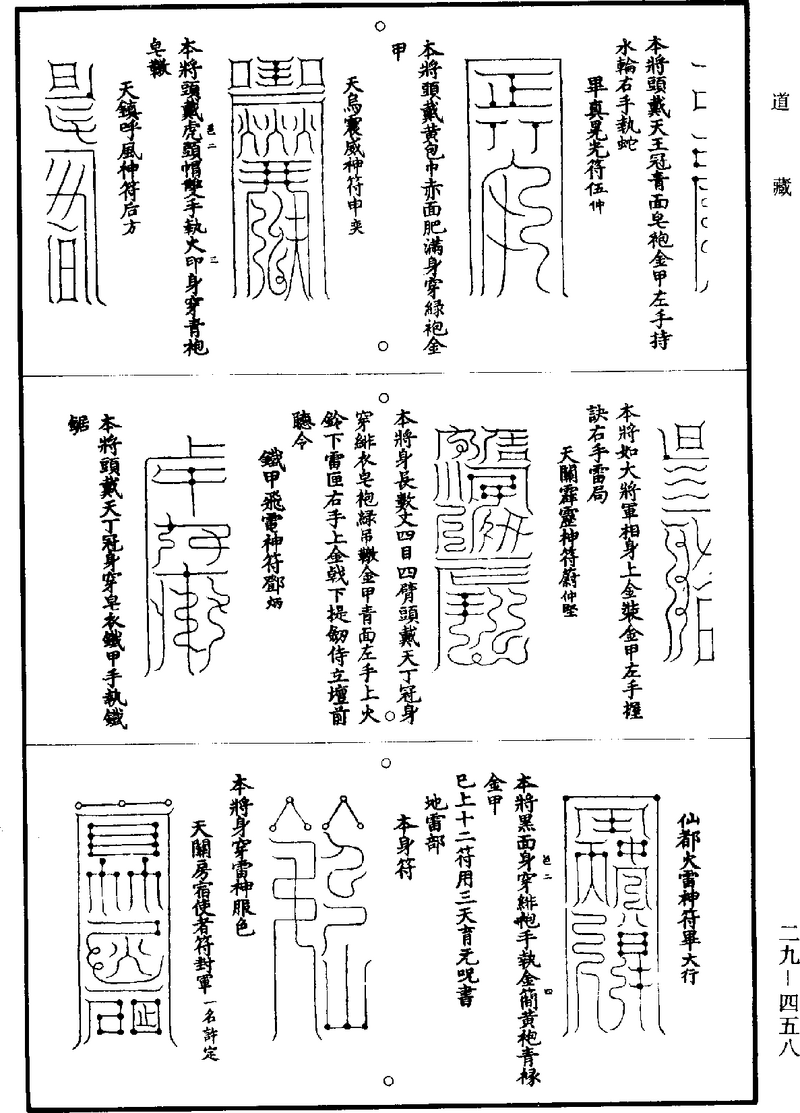 道藏
本將頭戴天王冠青面皂袍金甲左手持
水輪右手執蛇
畢真晃光符伍仲
本將頭戴黃包巾赤面肥滿身穿綠袍金
甲
天烏震威神符申奕
本將頭戴虎頭帽雙手執火印身穿青袍
皂鞾
天鎮呼風神符后方
本將如大將軍相身上金裝金甲左手握
訣右手雷局
天關霹靂神符蔚仲堅
本將身長數丈四目四臂頭戴天丁冠身
穿緋衣皂袍綠吊鞾金甲青面左手上火
鈴下雷匣右手上金戟下提劒侍立壇前
聽令
鐵甲飛雷神符鄧炳
本將頭戴天丁冠身穿皂衣鐵甲手執鐵
鋸
仙都火雷神符畢大行
本將黑面身穿緋袍手執金簡黃袍青綠
金甲
已上十二符用三天育元呪書
地雷部
本身符
本將身穿雷神服色
天關房宿使者符封軍一名許定
二九—四五八